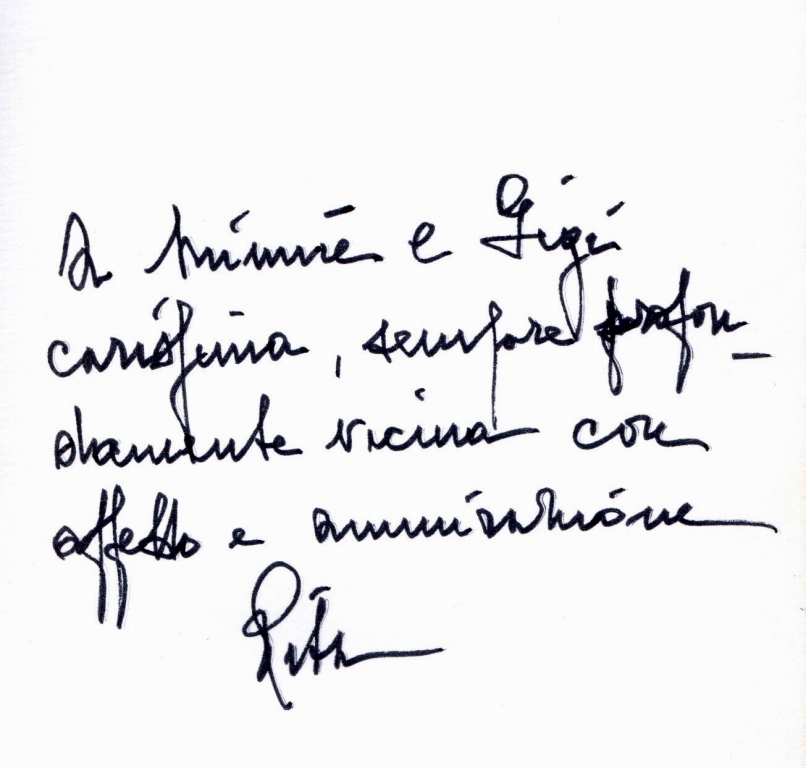 A e Gigi
carissima, sempre profon_
damente vicina con
affetto e ammirazione
Rita